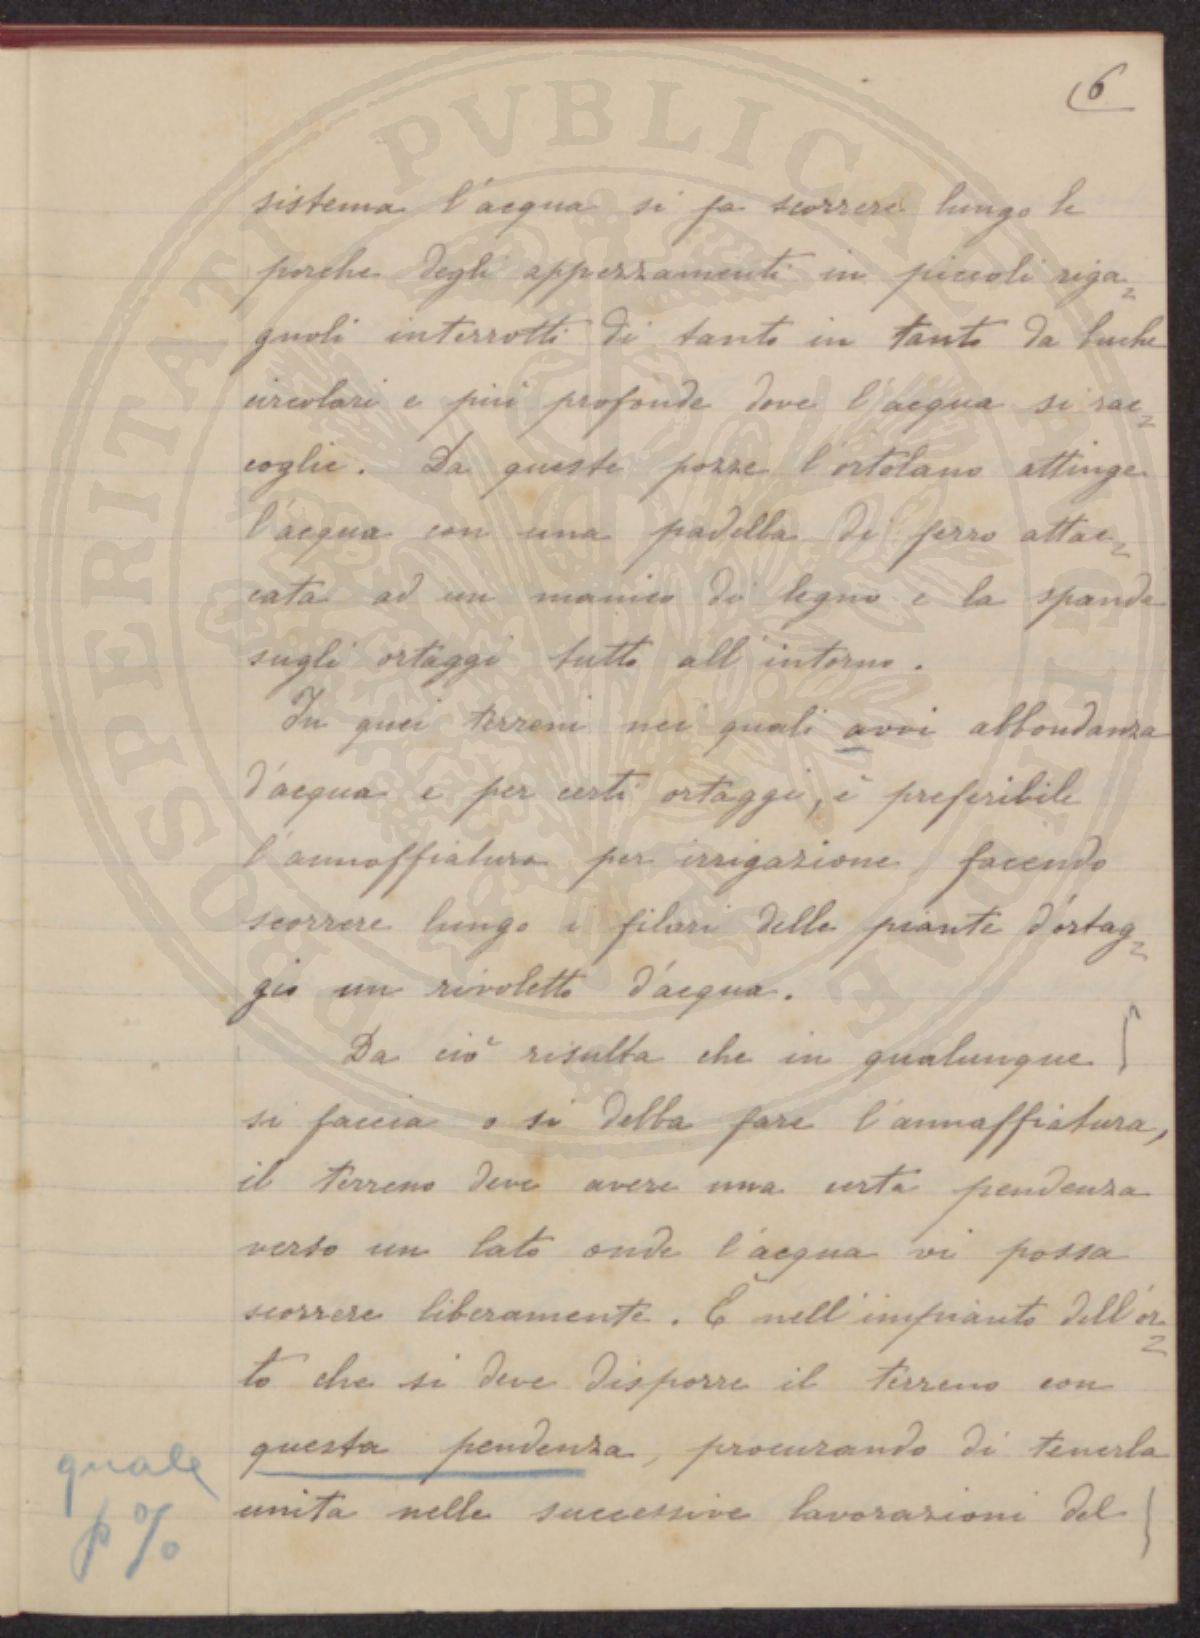 6
sistema l'acqua si fa scorrere lungo le
porche degli appezzamenti in piccoli riga=
gnoli interrotti di tanto in tanto da buche
circolari e più profonde dove l'acqua si rac=
coglie. Da queste pozze l'ortolano attinge
l'acqua con una padella di ferro attac=
cata ad un manico di legno e la spande
sugli ortaggi tutto all'intorno.
In quei terreni nei quali avvi abbondanza
d'acqua e per certi ortaggi, è preferibile
l'annaffiatura per irrigazione facendo
scorrere lungo i filari delle piante d'ortag=
gio un rivoletto d'acqua.
Da ciò risulta che in qualunque
si faccia o si debba fare l'annaffiatura,
il terreno deve avere una certa pendenza
verso un lato onde l'acqua vi possa
scorrere liberamente. È nell'impianto dell'or=
to che si deve disporre il terreno con
questa pendenza, procurando di tenerla
unita nelle successive lavorazioni del
quale
p %
PROSPERITATI PVBLICAE